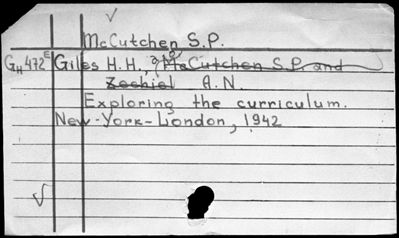 McCutchen S.P.
GH 472E Giles H.H., McCutchen S.P. and
Zechiel A.N.
Exploring the curriculum.
New-York-London, 1942